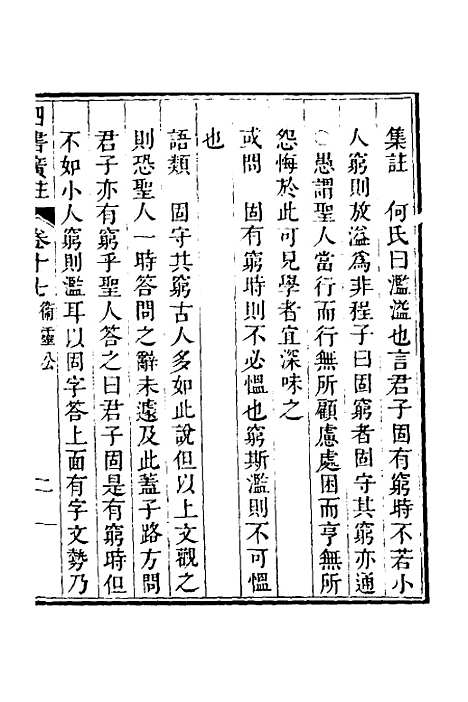 集註　何氏曰濫溢也言君子固有窮時不若小
人窮則放溢為非程子曰固窮者固守其窮亦通
○愚謂聖人當行而行無所顧慮處困而亨無所
怨悔於此可見學者宜深味之
或問　固有窮時則不必慍也窮斯濫則不可慍
也
語類　固守其窮古人多如此說但以上文觀之
則恐聖人一時答問之辭未遽及此蓋子路方問
君子亦有窮乎聖人答之曰君子固是有窮時但
不如小人窮則濫耳以固字答上面有字文勢乃
四書廣註　卷十七　衛靈公　二